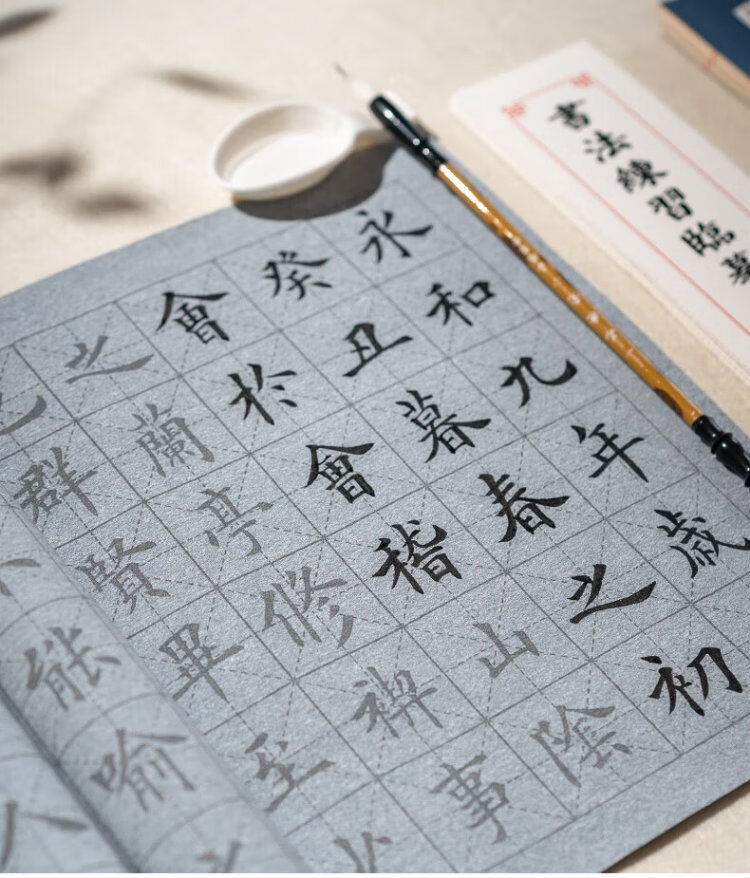 書法練習臨摹
永和九年歲
癸丑暮春之初
會於會稽山陰
之蘭亭修禊事
也群賢畢至
能喻